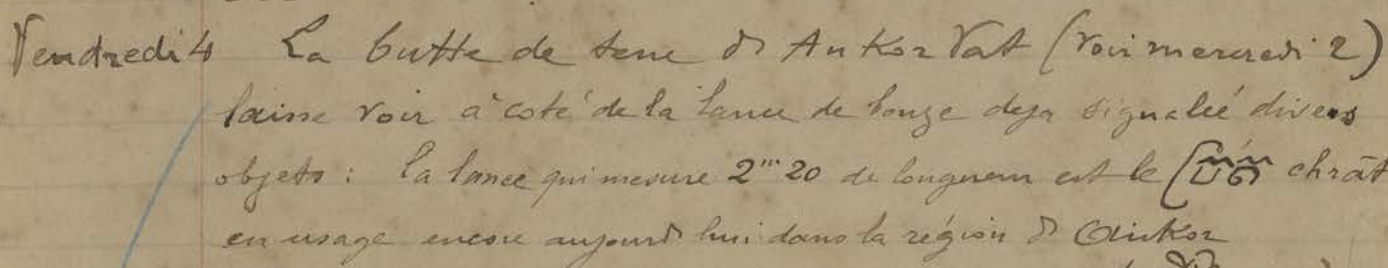 Vendredi 4 La butte de terre d'Ankor Vat (voir mercredi 2)
laisse voir à coté de la lance de bonze deja signalée divers
objets : la lance qui mesure 2m20 de longueur est le chrāt
en usage encore aujourd'hui dans la région d'Ankor